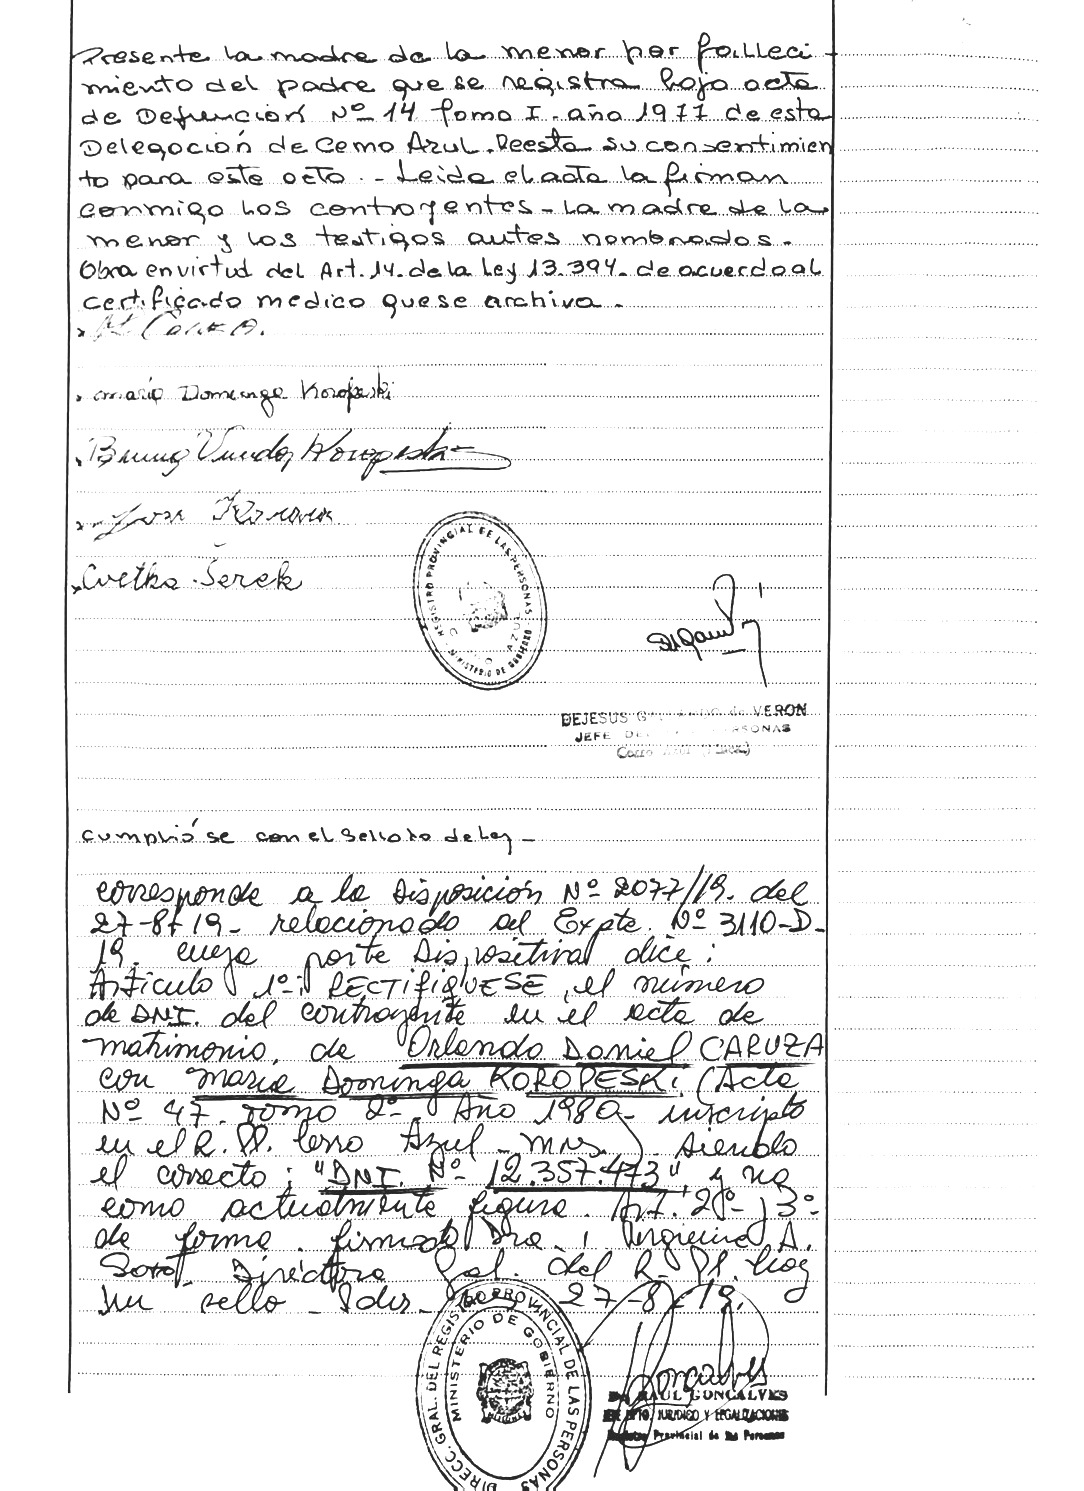 Presente la madre de la menor por falleci-
miento del padre que se registra bajo acta
de Defuncion Nº 14 Tomo I. año 1977 de esta
Delegación de Cerro Azul. Presta su consentimien
to para este acto. - Leida el acta la firman
conmigo los contrayentes - la madre de la
menor y los testigos antes nombrados.
Obra en virtud del Art. 14. de la Ley 13.394. de acuerdo al
certificado medico que se archiva.
Maria Dominga Koropeski
Koropeski
Cvetka Šerek
REGISTRO PROVINCIAL DE LAS PERSONAS
AZUL
MINISTERIO DE GOBIERNO
DEJESUS de VERON
JEFE PERSONAS
Cerro Azul
Cumplió se con el Sellado de Ley -
Corresponde a la Disposición Nº 2077/19. del
27-8-19 - relacionado al Expte. Nº 3110-D-
19. cuya parte Dispositiva dice:
Artículo 1º: RECTIFIQUESE, el número
de DNI. del contrayente en el acta de
matrimonio, de Orlando Daniel CARUZA
con Maria Dominga KOROPESKI (Acta
Nº 47. Tomo 2º - Año 1980 - inscripto
en el R. PP. Cerro Azul - Mnes) Siendo
el correcto: "DNI. Nº 12.357.473" y no
como actualmente figura. Art. 2º - y 3º
de forma. firmado Dra.
Soto Directora Gral. del R. PP. hay
un sello - Pdas - 27-8-19.
DIRECC. GRAL. DEL REGISTRO PROVINCIAL DE LAS PERSONAS
MINISTERIO DE GOBIERNO
Goncalves
Dr. RAUL GONCALVES
JEFE DPTO. JURIDICO Y LEGALIZACIONES
Registro Provincial de las Personas